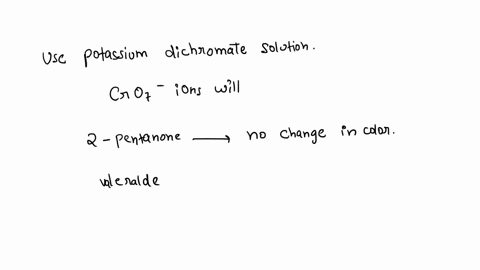 Use potassium dichromate solution.
CrO₇⁻ ions will
2-pentanone ⟶ no change in color.
valeralde